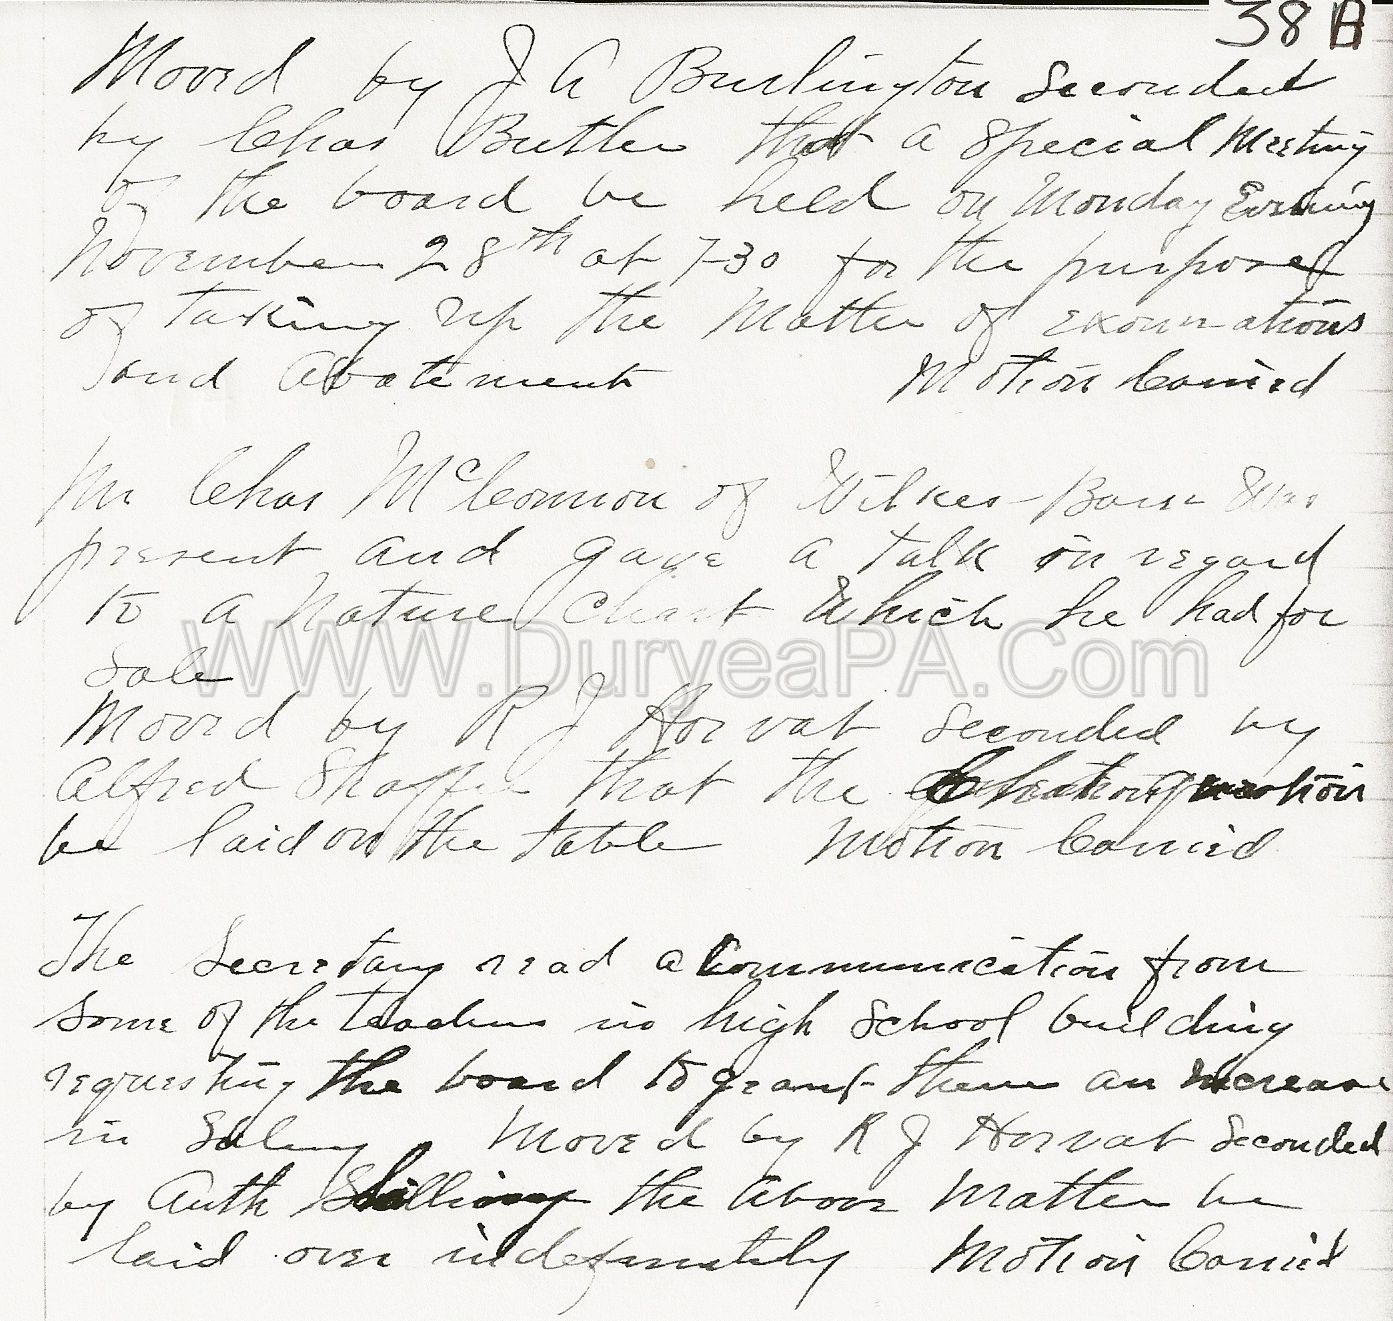 38 B
Moved by J A Burlington Seconded
by Chas Butler that a Special Meeting
of the board be held on Monday Evening
November 28th at 7-30 for the purpose
of taking up the Matter of exonorations
and Abatement Motion Carried
Mr Chas McConnon of Wilkes-Barre Was
present and gave a talk in regard
to a Nature Chart Which he had for
Sale
WWW.DuryeaPA.Com
Moved by R J Horvat Seconded by
Alfred Shaffer that the question
be laid on the table Motion Carried
The Secretary read a Communication from
Some of the teachers in high School building
requesting the board to grant them an increase
in Salary Moved by R J Horvat Seconded
by Auth the above Matter be
laid over indefinately Motion Carried